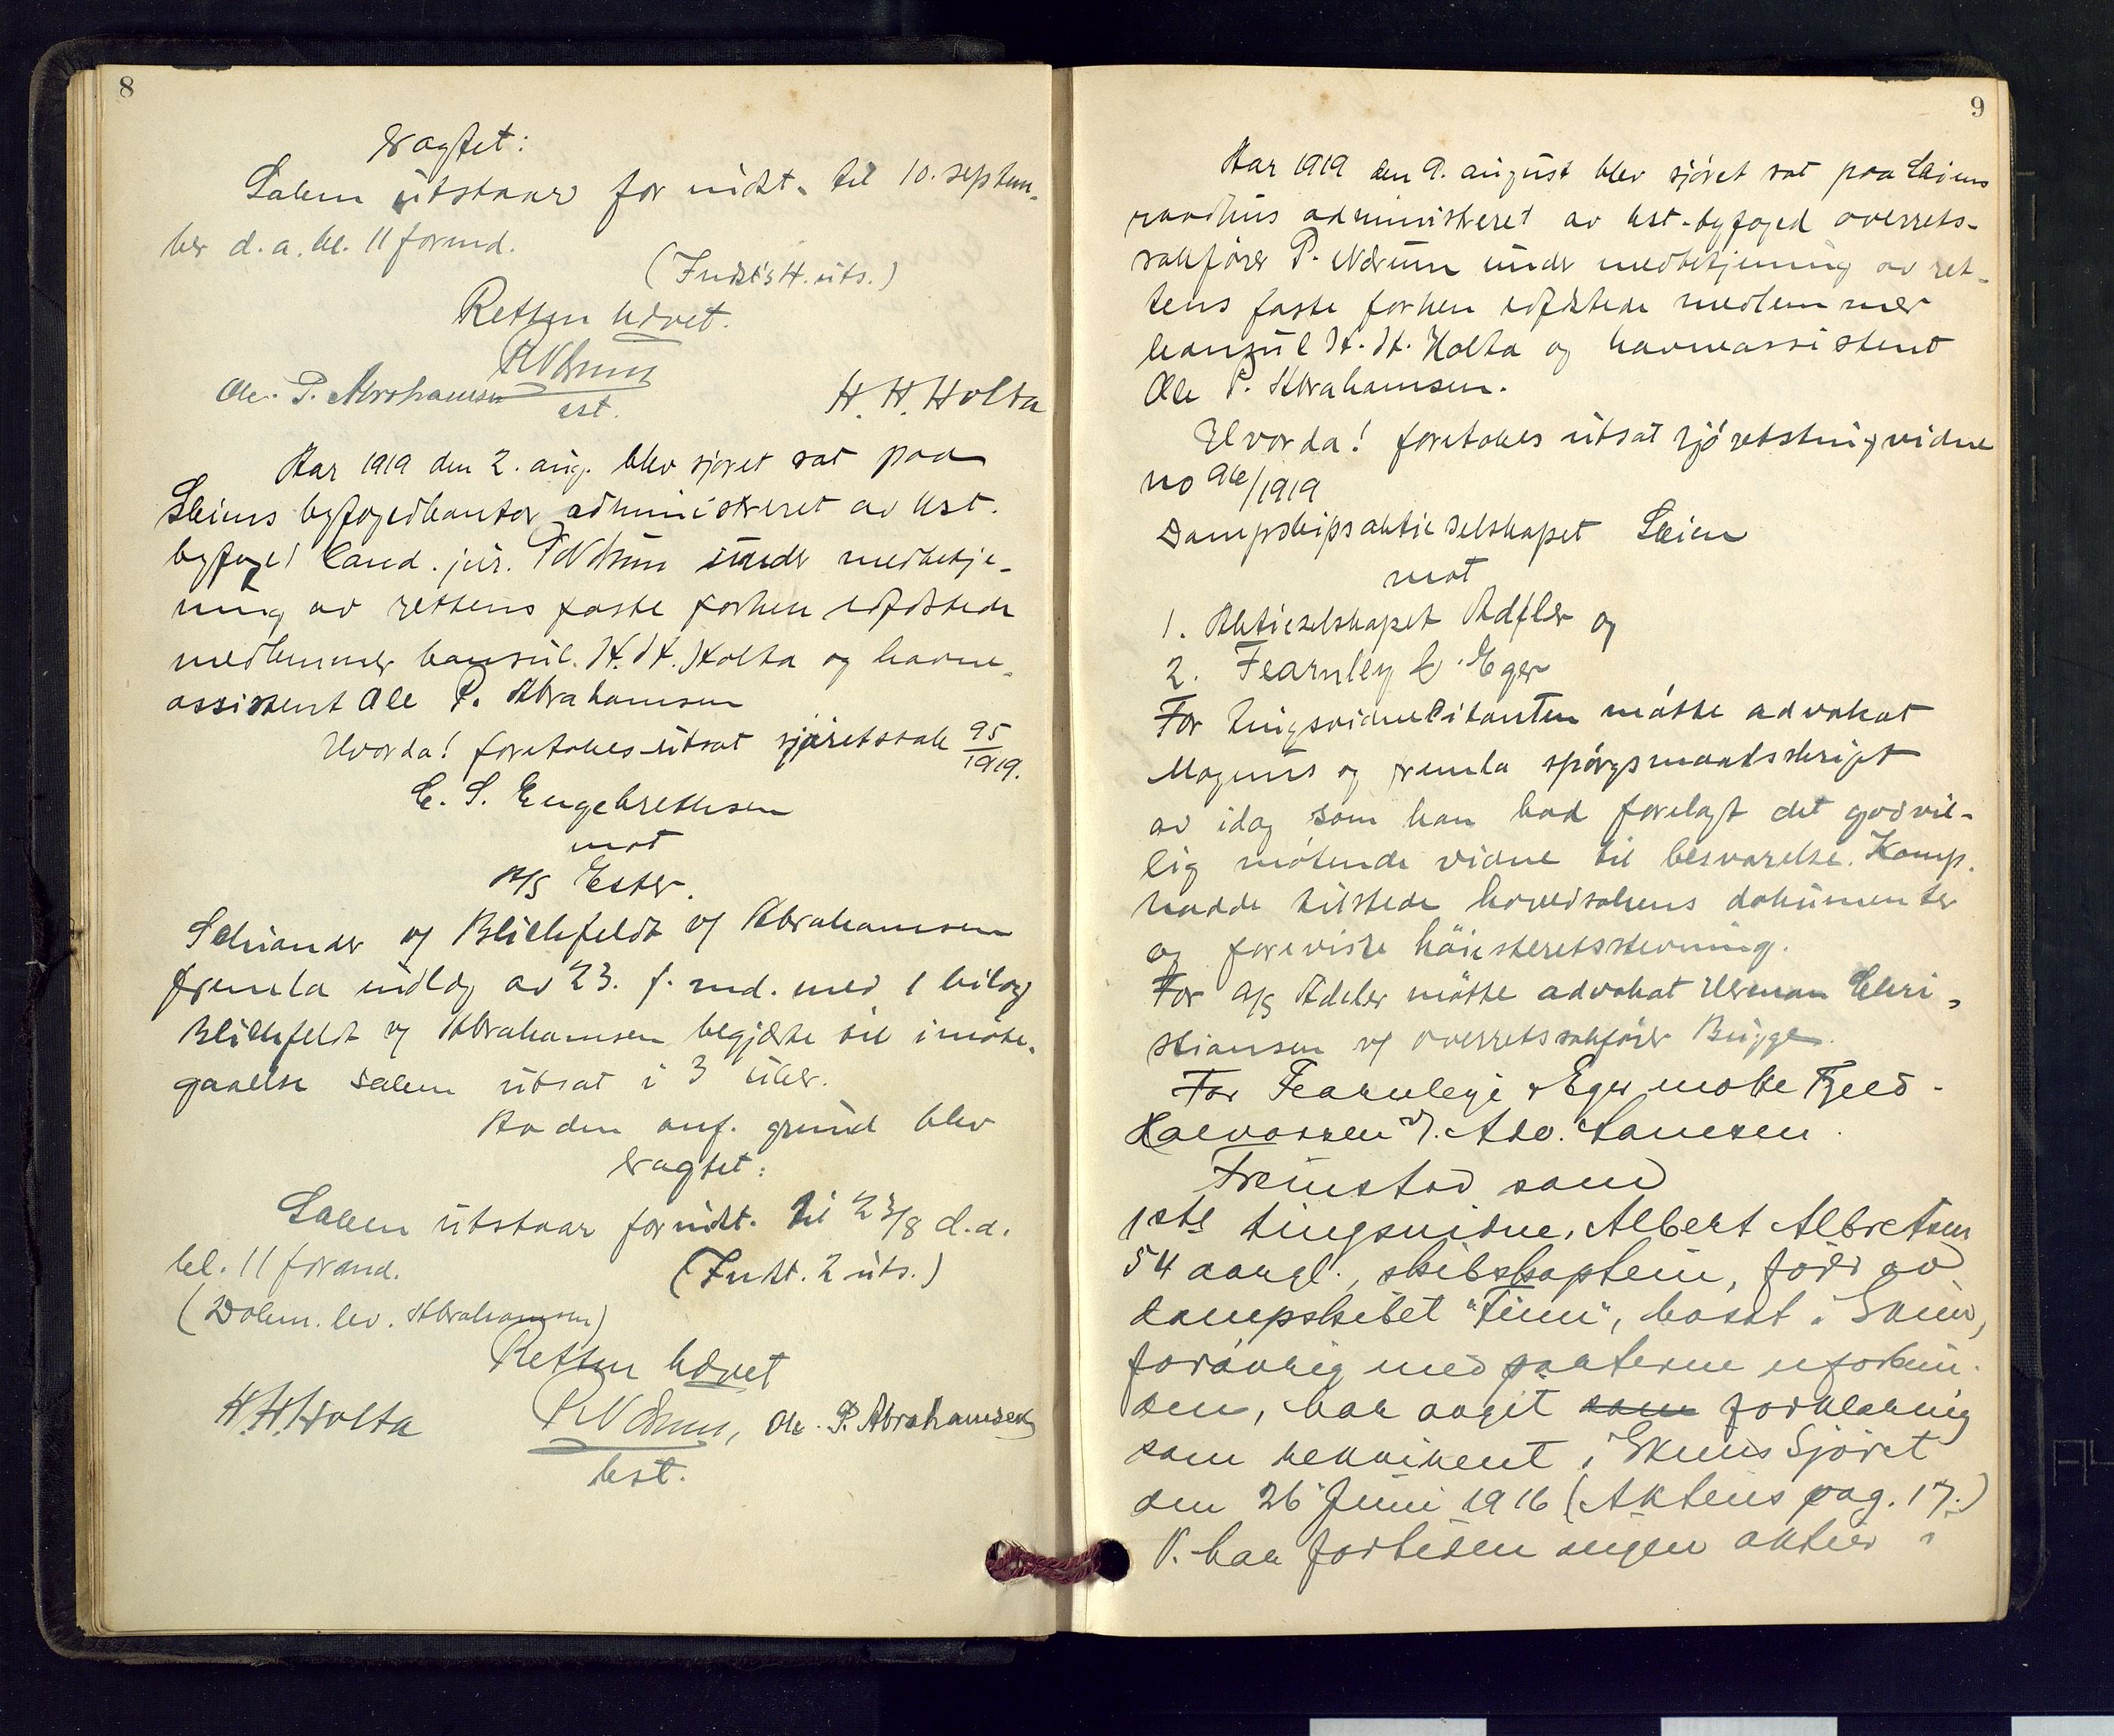 8
vagtet:
Saken utstaar for indst. til 10. septem-
ber d. a. kl. 11 formd.
(Indst's 4. uts.)
Retten hævet.
P Nærum
Ole. P. Abrahamsen
est.
H. H. Holta
Aar 1919 den 2. aug. blev sjøret sat paa
Skiens byfogedkontor administreret av kst.
byfoged cand. jur. P Nærum under medbetje-
ning av rettens faste forhen edfæstede
medlemmer konsul. H. H. Holta og havne-
assistent Ole P. Abrahamsen
Hvorda! foretokes utsat sjøretssak 95/1919.
E. S. Engebrethsen
mot
A/S Ester.
Schiander v/ Blichfeldt v/ Abrahamsen
fremla indlæg av 23. f. md. med 1 bilag
Blichfeldt v/ Abrahamsen begjærte til imøte-
gaaelse saken utsat i 3 uker.
Av den anf. grund blev
vagtet:
Saken utstaar for indst. til 23/8 d. a.
kl. 11 formd.
(Indst. 2 uts.)
(Dokm. lev. Abrahamsen)
Retten hævet
H. H. Holta
P Nærum, Ole. P. Abrahamsen
kst.
9
Aar 1919 den 9. august blev sjøret sat paa Skiens
raadhus administreret av kst. byfoged overrets-
sakfører P. Nærum under medbetjening av ret-
tens faste forhen edfæstede medlemmer
konsul H. H. Holta og havneassistent
Ole P. Abrahamsen.
Hvorda! foretokes utsat sjøretstingvidne
no 96/1919
Dampskipsaktieselskapet Skien
mot
1. Aktieselskapet Adeler og
2. Fearnley & Eger
For tingsvidnecitanten møtte advokat
Magnus og fremla spørgsmaalsskript
av idag som han bad forelagt det godvil-
lig møtende vidne til besvarelse. Komp.
hadde tilstede hovedsakens dokumenter
og foreviste høiesteretsstevning.
For A/S Adeler møtte advokat Herman Chri-
stiansen v/ overretssakfører Bugge.
For Fearnleye & Eger møtte Fjeld-
Halvorsen v/. Adv. Samesen.
Fremstod som
1ste tingsvidne, Albert Albretsen
54 aargl., skibskaptein, fører av
dampskibet "Finn", bosat i Skien,
forøvrig med parterne uforbun-
den, har avgit som forklaring
som rekvirent i Skiens Sjøret
den 26 Juni 1916 (Aktens pag. 17.)
V. har fortiden ingen aktier i